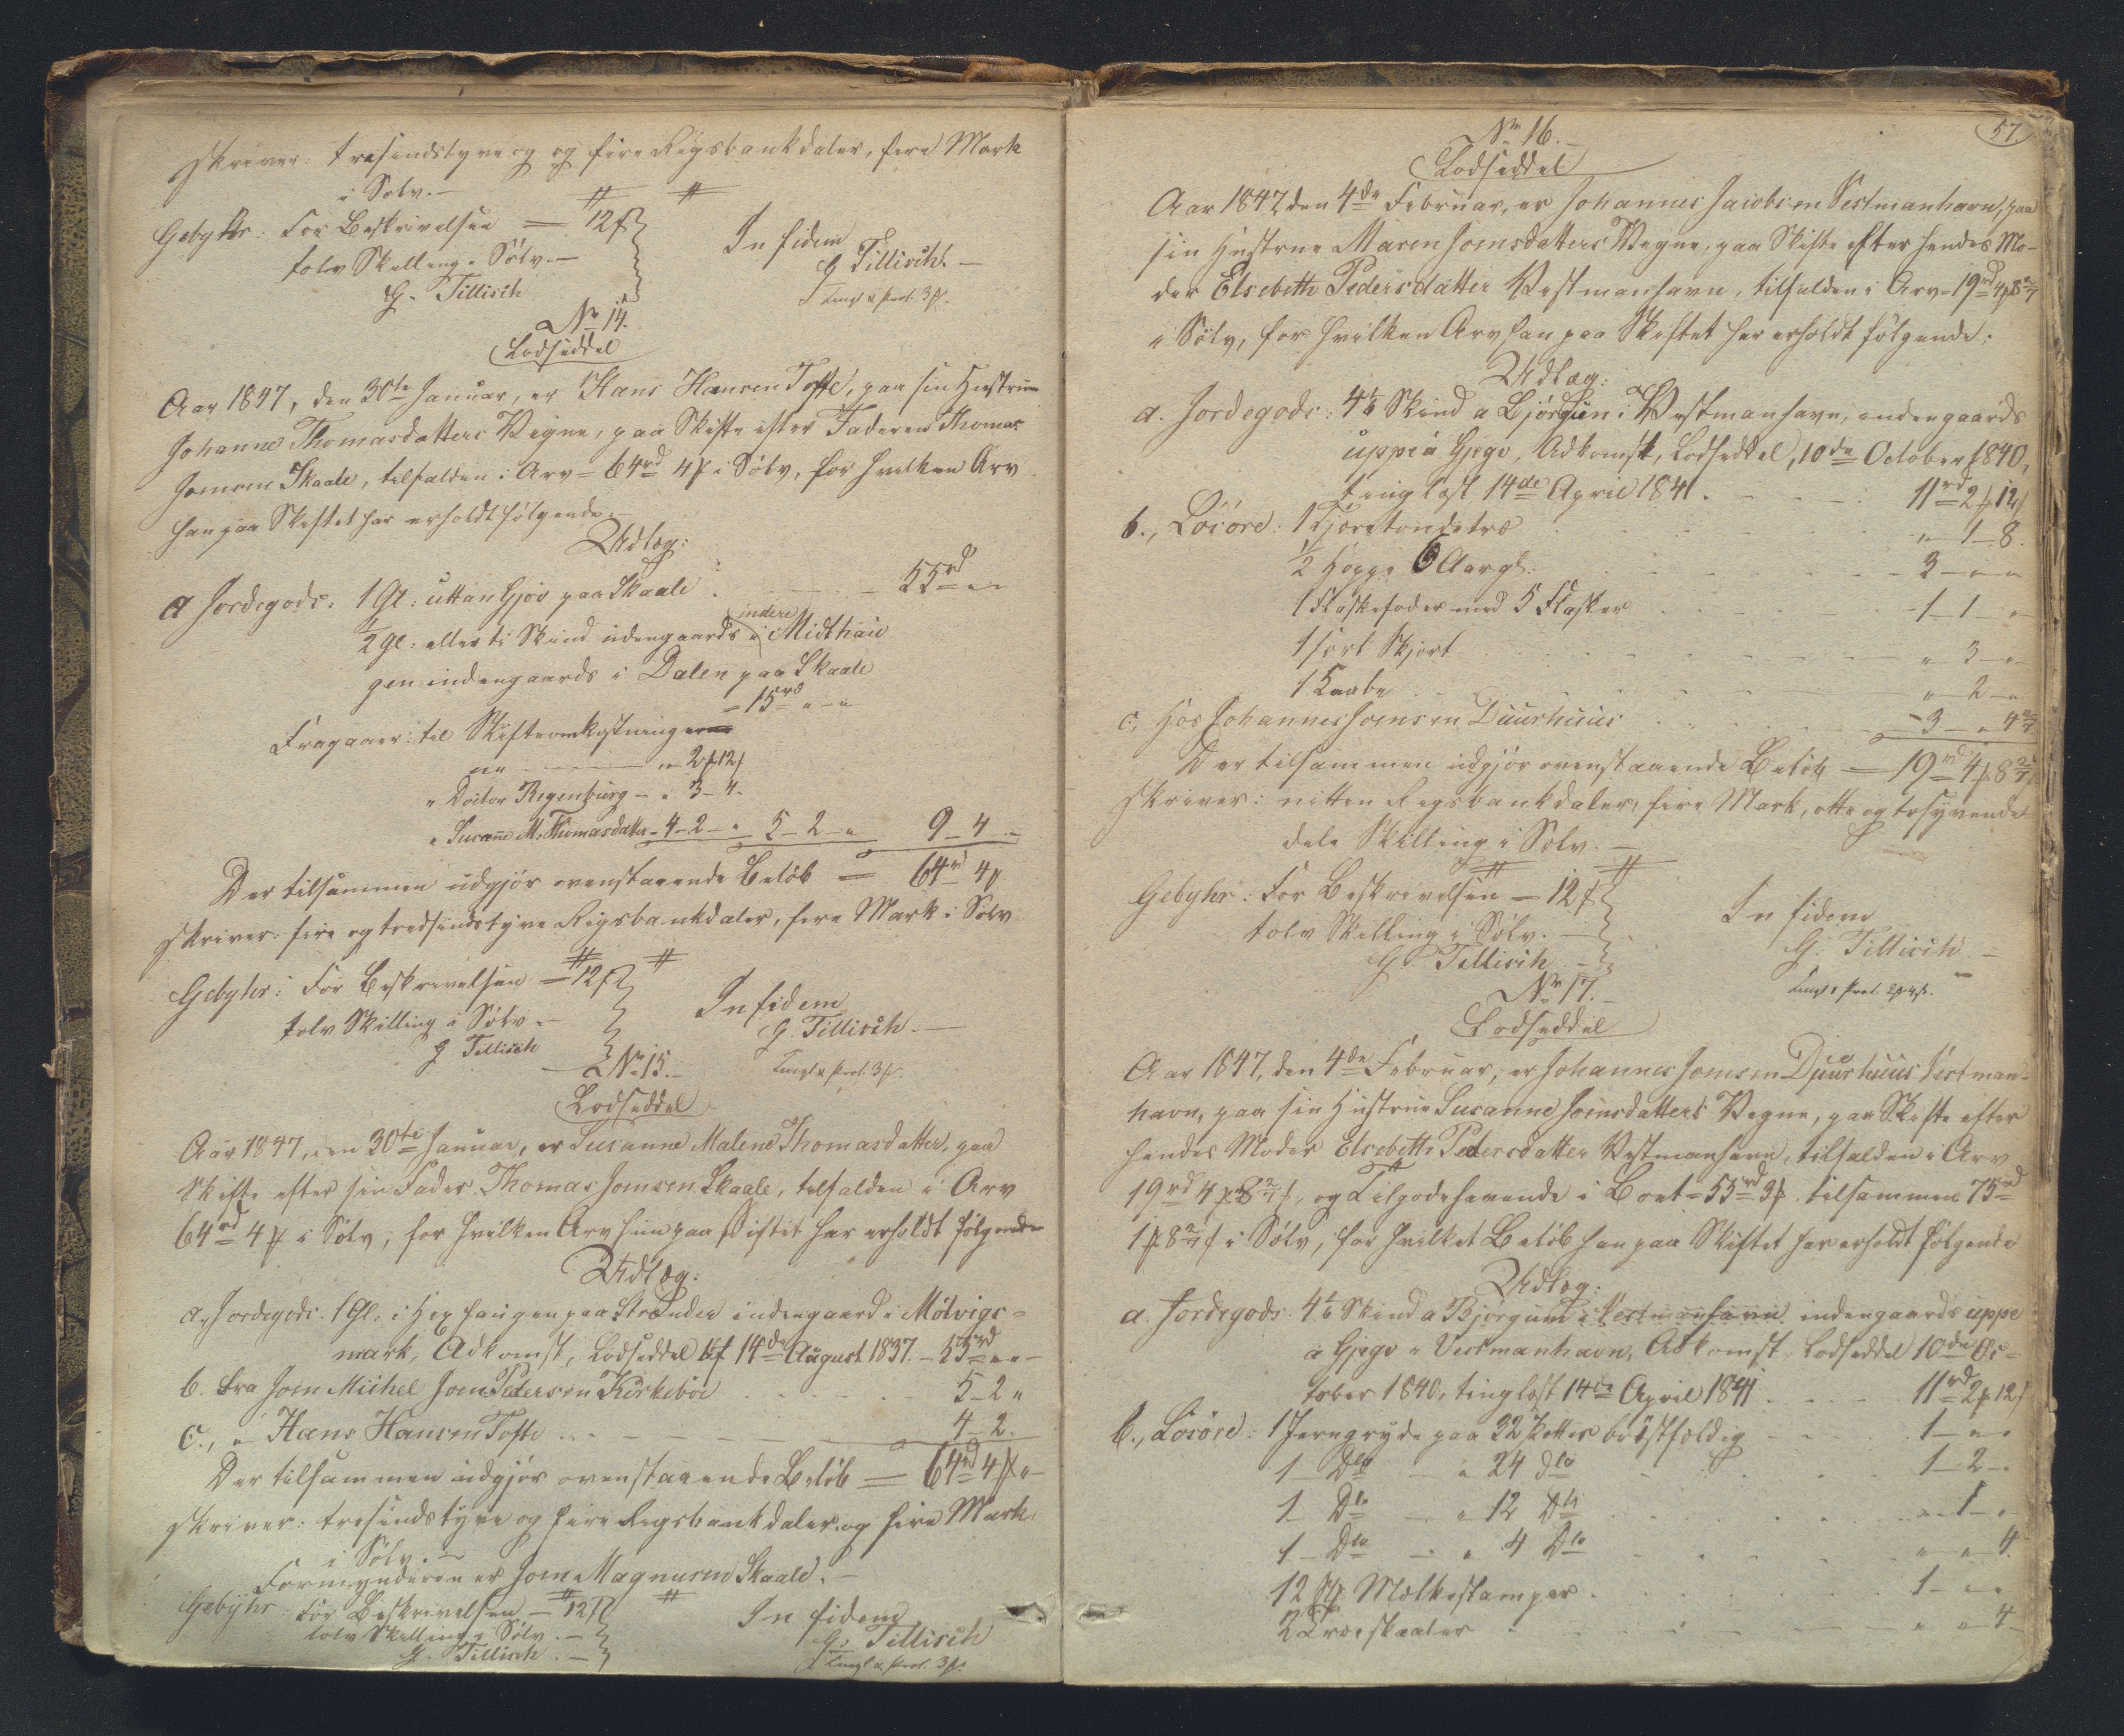 skriver: tresindstyve og og fire Rigsbankdaler, fire Mark
i Sølv.—
Gebyhr: For Beskrivelsen = 12 ß
tolv Skilling i Sølv.—
G. Tillisch
In fidem
G Tillisch.—
Tingl & Prot. 3ß.
No 14.
Lodseddel
Aar 1847, den 30te Januar, er Hans Hansen Tofte, paa sin Hustrue
Johanne Thomasdatters Vegne, paa Skifte efter Faderen Thomas
Joensen Skaale, tilfalden i Arv = 64rd 4 ꝑ i Sølv, for hvilken Arv
han paa Skiftet har erholdt følgende.—
Udlæg:
a Jordegods: 1 Gl: uttan Gjov paa Skaale . — 55rd " "
1/2 Gl: eller ti Skind udengaards i indere Midthau
gen indengaards i Dalen paa Skaale
= 15rd " — "
Fragaaer: til Skifteomkostninger
ne — " 2 ꝑ 12 ß
" Doctor Regenburg — " 3 — 4.
" Susanne M. Thomasdatter — 4 — 2 — " 5 — 2 — " 9 — 4 —
Der tilsammen udgjør ovenstaaende Beløb = 64rd 4 ꝑ
skriver: fire og tredsindstyve Rigsbankdaler, fire Mark i Sølv
Gebyhr: For Beskrivelsen = 12 ß
tolv Skilling i Sølv.—
G Tillisch
In fidem
G. Tillisch.—
Tingl & Prot. 3ß.
No 15.—
Lodseddel
Aar 1847, den 30te Januar, er Susanne Malene Thomasdatter, paa
Skifte efter sin Fader Thomas Joensen Skaale, tilfalden i Arv
64rd 4 ꝑ i Sølv, for hvilken Arv hun paa Skiftet har erholdt følgende
Udlæg:
a, Jordegods: 1 Gl: i Høghaugen paa Strænder indengaard i Mølvigs=
mark, Adkomst, Lodseddel af 14de August 1837. — 55rd " "
b. Fra Joen Michel Joen Petersen Kirkebøe . . . 5 — 2 "
c., " Hans Hansen Tofte . . . 4 — 2.
Der tilsammen udgjør ovenstaaende Beløb = 64rd 4 ꝑ " —
skriver: tresindstyve og fire Rigsbankdaler og fire Mark
i Sølv.—
Formynderen er Joen Magnusen Skaale.—
Gebyhr: For Beskrivelsen = 12 ß
tolv Skilling i Sølv.—
G. Tillisch.—
In fidem
G. Tillisch
Tingl & Prot. 3ß.
57.
No 16.—
Lodseddel
Aar 1847, den 4de Februar, er Johannes Jacobsen Vestmanhavn, paa
sin Hustrue Maren Joensdatters Vegne, paa Skifte efter hendes Mo-
der Elsebeth Pedersdatter Vestmanhavn, tilfalden i Arv = 19rd 4 ꝑ 8 2/7
i Sølv, for hvilken Arv han paa Skiftet har erholdt følgende:
Udlæg:
a. Jordegods: 4 1/6 Skind a Bjørgum i Vestmanhavn, indengaards
uppe á Gjegv, Adkomst, Lodseddel, 10de October 1840,
tinglæst 14de April 1841 . . . 11rd 2 ꝑ 12 ß
b., Løsøre: 1 Tjæretøndetræ . . . " — 1 — 8.
1/2 Høppe 6 Aargl: . . . 3 — " — "
1 Flaskefoder med 5 Flasker . . . 1 — 1 — "
1 sort Skjort . . . " 3 — "
1 Kaabe . . . " — 2 — "
c, Hos Johannes Joensen Duurhuus . . . — 3 — " 4 2/7
Der tilsammen udgjør ovenstaaende Beløb = 19rd 4 ꝑ 8 2/7 ß
skriver: nitten Rigsbankdaler, fire Mark, otte og to syvende
dele Skilling i Sølv.—
Gebyhr: For Beskrivelsen = 12 ß
tolv Skilling i Sølv.—
G. Tillisch —
In fidem
G. Tillisch —
Tingl & Prot. 2ꝑ 4ß.
No 17.—
Lodseddel
Aar 1847, den 4de Februar, er Johannes Joensen Duurhuus Vestman-
havn, paa sin Hustrue Susanne Joensdatters Vegne, paa Skifte efter
hendes Moder Elsebeth Pedersdatter Vestmanhavn, tilfalden i Arv
19rd 4 ꝑ 8 2/7 ß, og Tilgodehavende i Boet = 55rd 3 ꝑ tilsammen 75rd
1 ꝑ 8 2/7 ß i Sølv, for hvilket Beløb han paa Skiftet har erholdt følgende
Udlæg:
a. Jordegods: 4 1/6 Skind a Bjørgum i Vestmanhavn. indengaards uppe
á Gjegv i Vestmanhavn, Adkomst, Lodseddel 10de Oc=
tober 1840, tinglæst 14de April 1841 . . . 11rd 2 ꝑ 12 ß
b., Løsøre: 1 Jerngryde paa 32 Potter brøstfældig . . . 1 — " "
1 — Do — " 24 do . . . 1 — 2 — "
1 — Do — " 12 Do . . . " — 1 — "
1 — Do — " 4 Do . . . " — " 4.
12 Mælkestamper . . . 1 — " "
2 Træskaaler . . . " — " 4 —